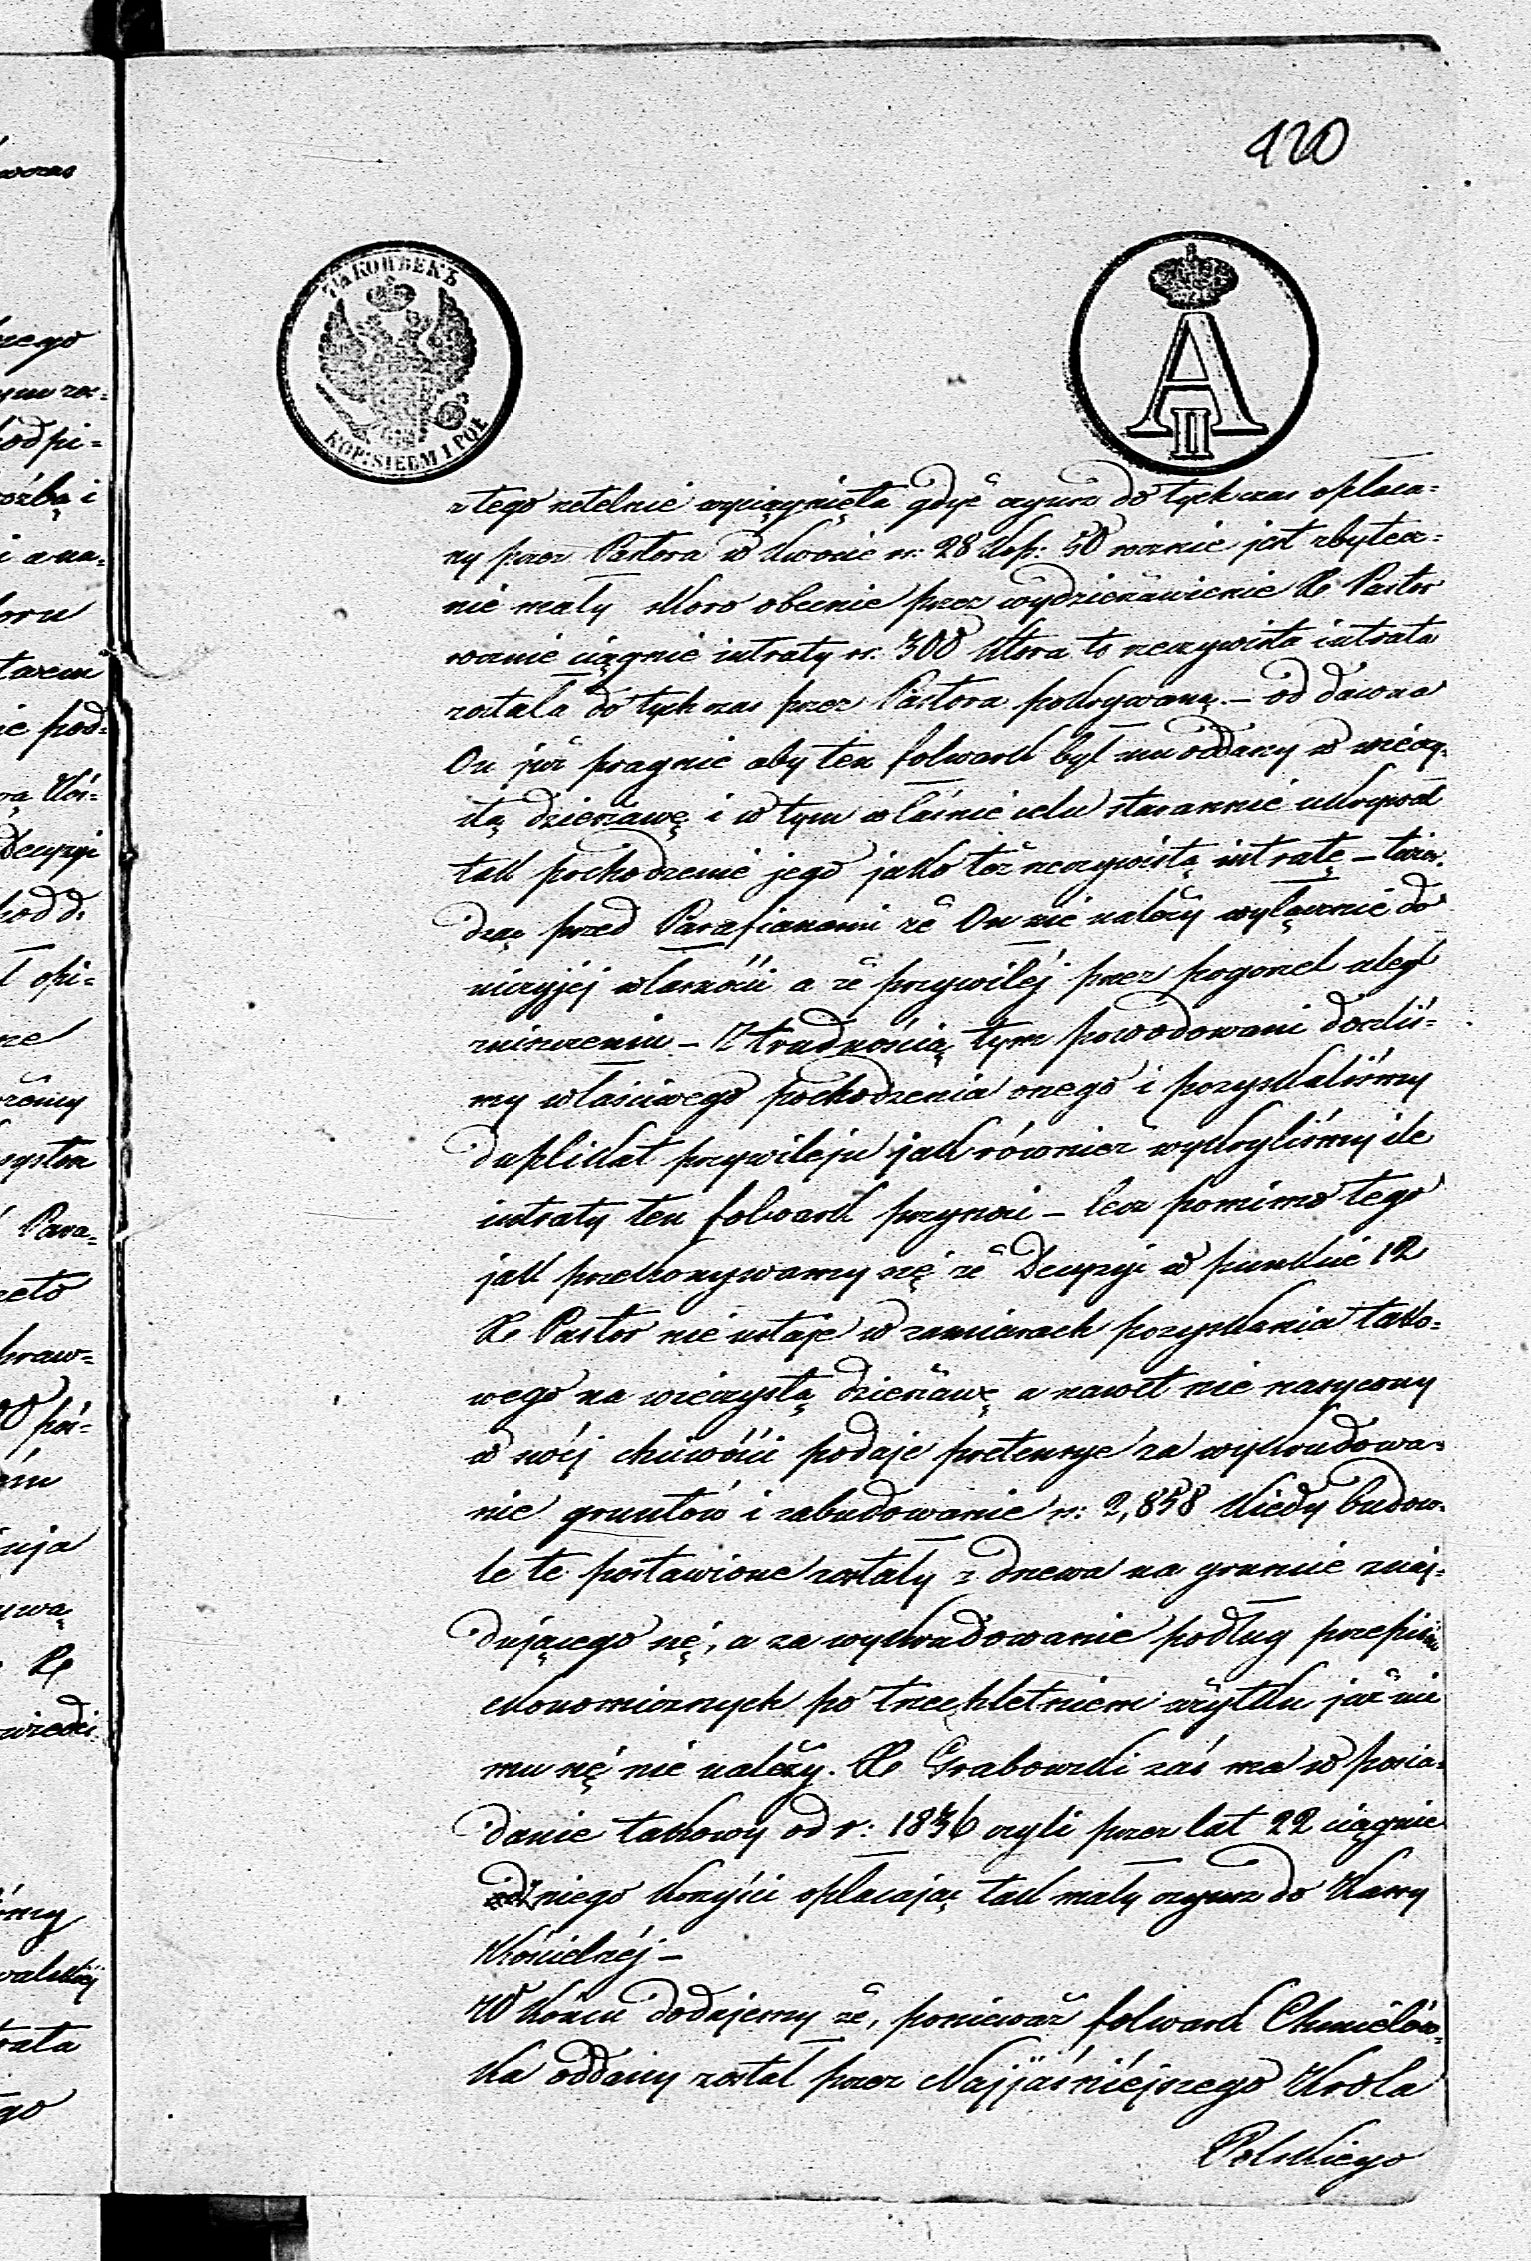 420
7½ КОПѢЕКЪ
KOP: SIEDM I PÓŁ
A II
z tego rzetelnie wyciągnięta gdyż czynsz do tych czas opłaca=
ny przez Pastora w kwocie rs: 28 kop: 50 rocznie jest zbytecz=
nie mały skoro obecnie przez wydzierżawienie Ks Pastor
rocznie ciągnie intraty rs. 300 która to rzeczywista intrata
została do tych czas przez Pastora pokrywaną. – od dawna
On już pragnie aby ten folwark był mu oddany w wieczy=
stą dzierżawę i w tym właśnie celu starannie ukrywał
tak pochodzenie jego jako też rzeczywistą intratę – twier=
dząc przed Parafianami że On nie należy wyłącznie do
niczyjej własności a że przywilej przez pogorzel uległ
zniszczeniu – Z trudnością tym powodowani doszliś=
my właściwego pochodzenia onego i pozyskaliśmy
duplikat przywileju jak również wykryliśmy ile
intraty ten folwark przynosi – lecz pomimo tego
jak przekonywamy się że Decyzyi w punkcie 12
Ks Pastor nie ustaje w zamiarach pozyskania tako=
wego na wieczystą dzierżawę a nawet nie nasycony
w swój chciwości podaje pretensye za wykrudowa=
nie gruntów i zabudowanie rs: 2,858 kiedy budow=
le te postawione zostały z drzewa na gruncie znaj=
dującego się, a za wykrudowanie podług przepisów
ekonomicznych po trzechletniem użytku już nic
mu się nie należy. Ks Grabowski zaś ma w posia=
danie takowy od r: 1836 czyli przez lat 22 ciągnie
z niego korzyści opłacając tak mały czynsz do Kassy
Kościelnéj –
W końcu dodajemy że, ponieważ folwark Chmielów=
ka oddany został przez Najjaśniéjszego Króla
Polskiego